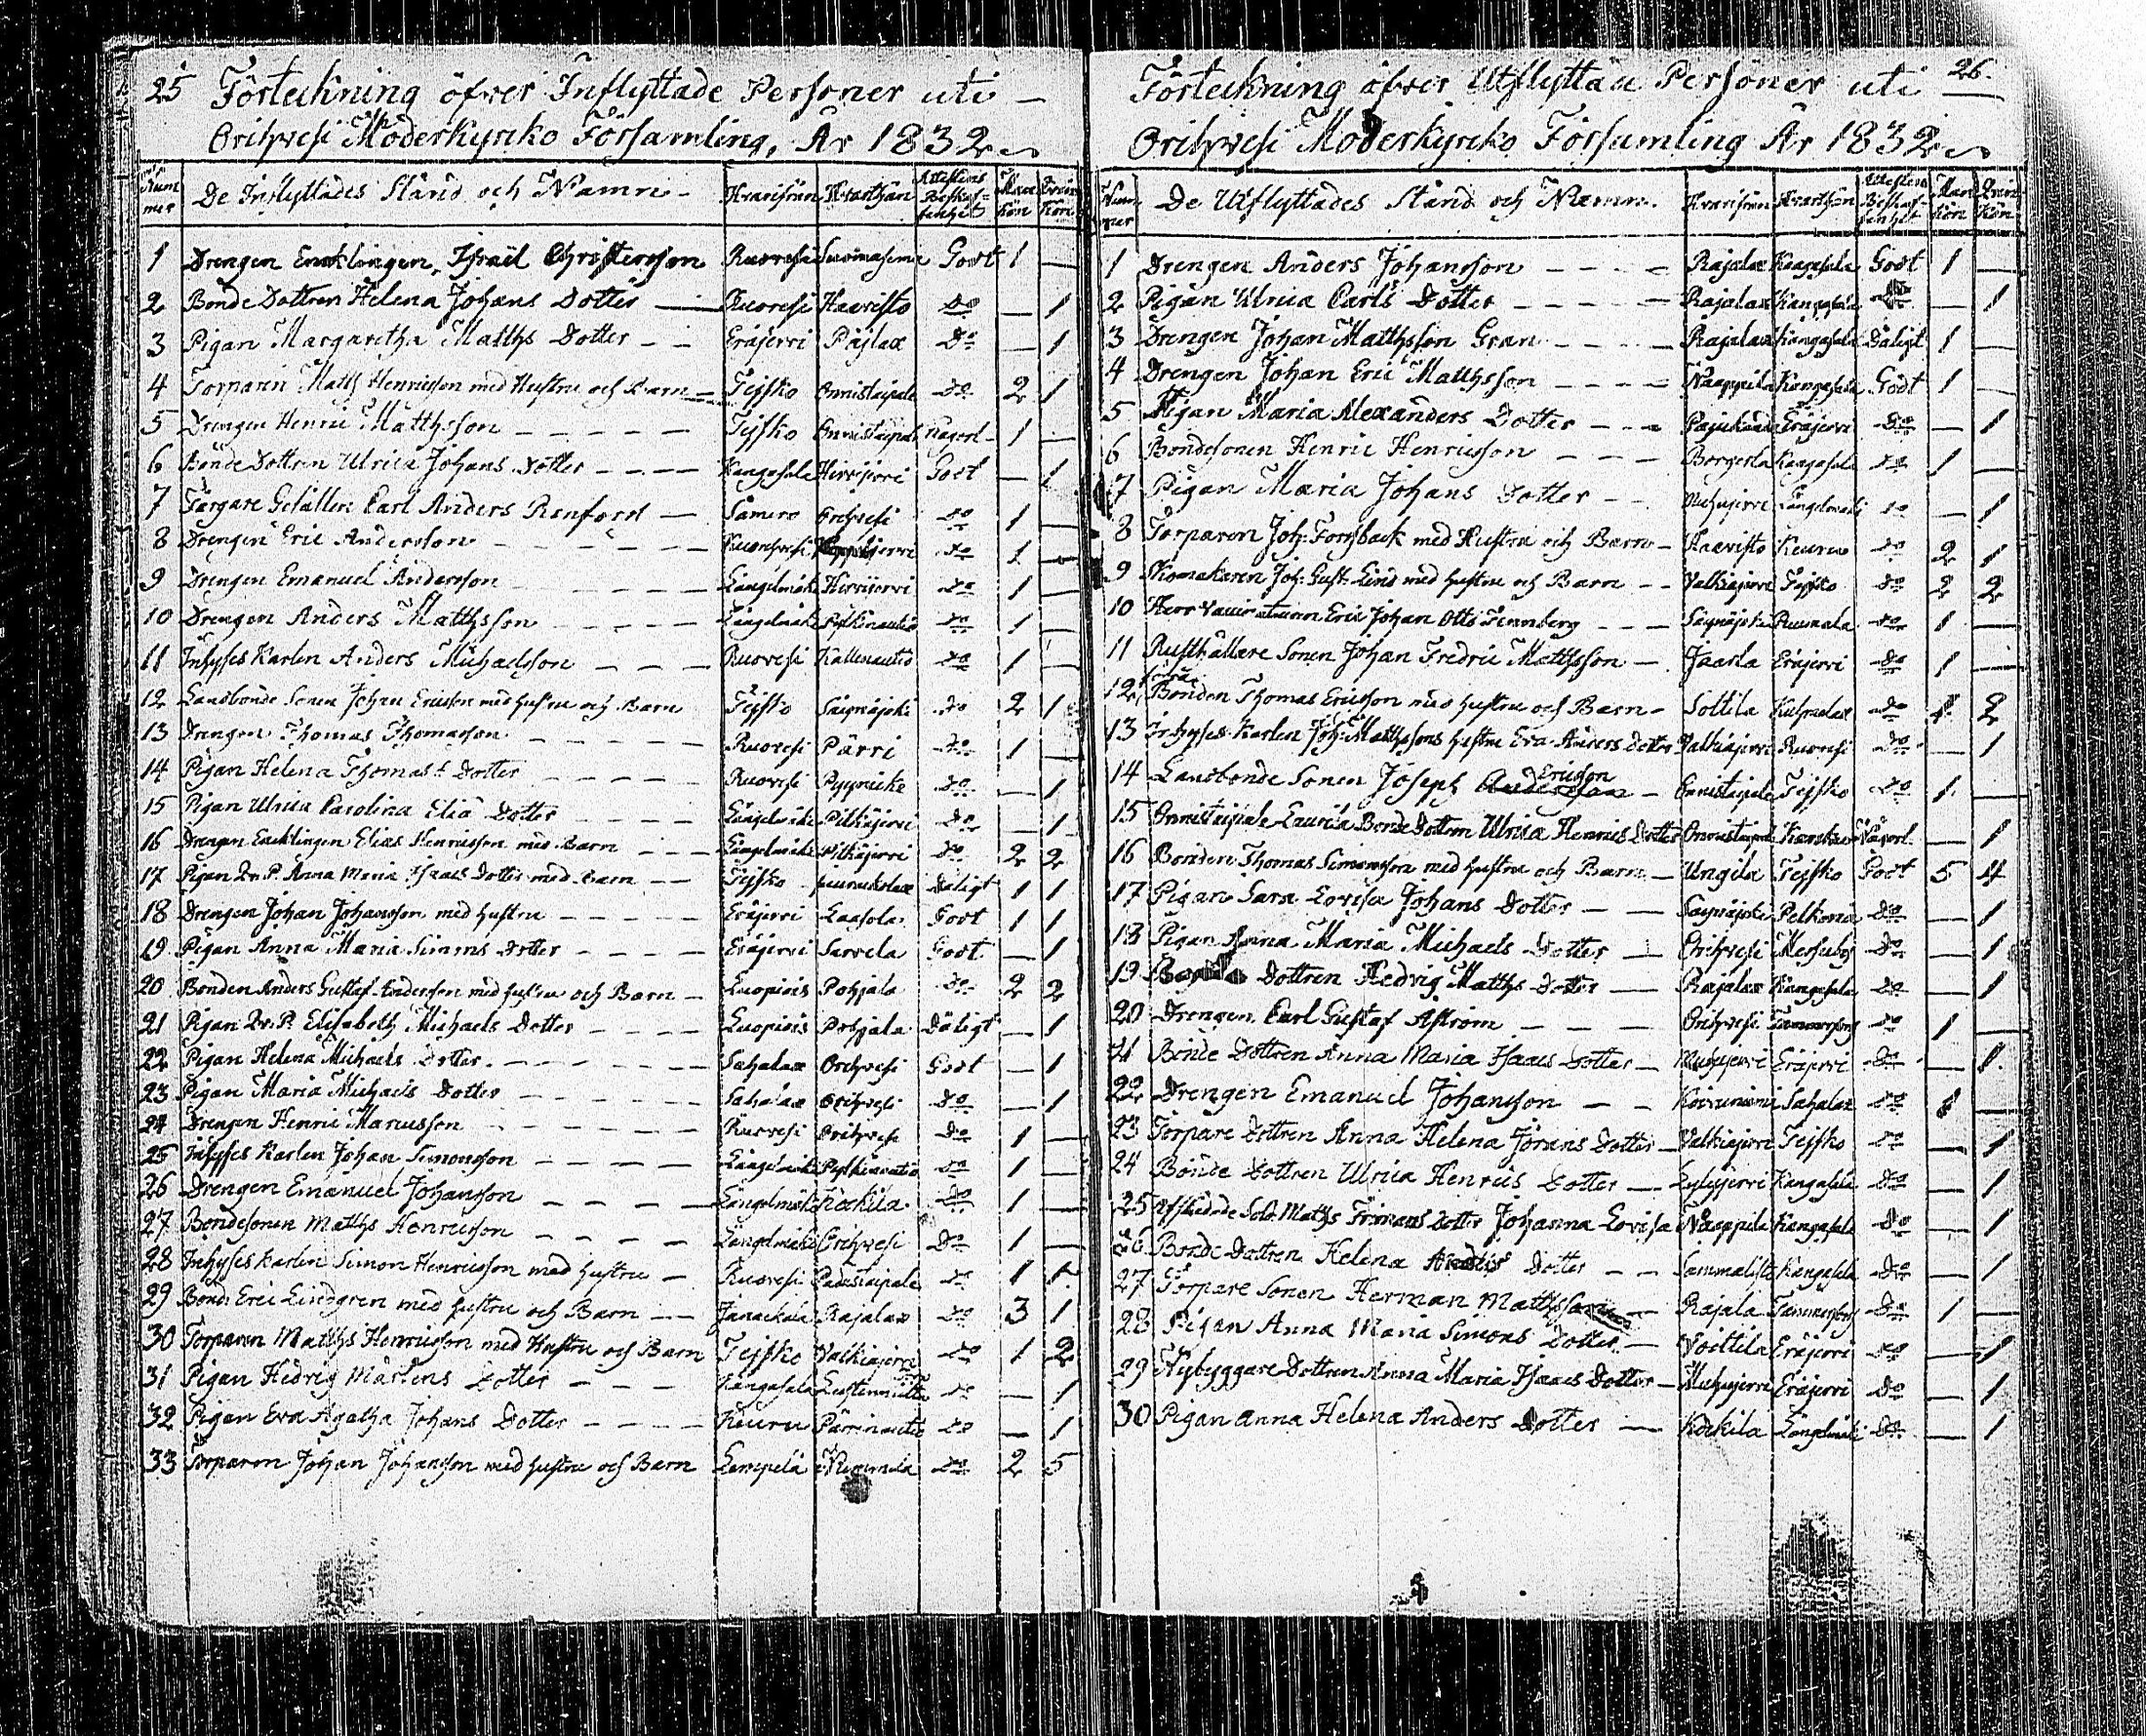 25 Förteckning öfver Inflyttade Personer uti
Orihvesi Moderkyrko Församling, År 1832
Num mer De Inflyttades Stånd och Namn Hvarifrån Hvarthän Attestens Beskaffenhet Man Kön Qvin Kön
1 Drengen Enklingen, Israël Christersson Ruovesi Godt 1 —
2 Bonde Dottren Helena Johans Dotter Ruovesi Haavisto Do — 1
3 Pigan Margaretha Matths Dotter Eräjervi Do — 1
4 Torparen Matts Henricsson med Hustru och Barn Tejsko Onnistaipale Do 2 1
5 Drengen Henric Matthsson Tejsko Onnistaipale Någorl 1 —
6 Bonde Dottren Ulrica Johans Dotter Kangasala Hirvijervi Godt — 1
7 Färgare Gesällen Carl Anders Renfors Orihvesi Do 1 —
8 Drengen Eric Andersson Kuorevesi Do 1 —
9 Drengen Emanuel Andersson Längelmäki Hirvijervi Do 1 —
10 Drengen Anders Matthsson Längelmäki Do 1 —
11 Inhyses Karlen Anders Michaelsson Ruovesi Kallenautio Do 1 —
12 Landbonde Sonen Johan Ericsson med hustru och Barn Tejsko Säynäjoki Do 2 1
13 Drengen Thomas Thomasson Ruovesi Pärri Do 1 —
14 Pigan Helena Thomas Dotter Ruovesi Do — 1
15 Pigan Ulrica Carolina Elia Dotter Längelmäki Pitkäjervi Do — 1
16 Drengen Encklingen Elias Henricsson med Barn Längelmäki Pitkäjervi Do 2 2
17 Pigan Qv. P. Anna Maria Isaacs Dotter med Barn Tejsko Dåligt 1 1
18 Drengen Johan Johansson med hustru Eräjervi Laasola Godt 1 1
19 Pigan Anna Maria Simons Dotter Eräjervi Sarvela Godt — 1
20 Bonden Anders Gustaf Andersson med hustru och Barn Luopiois Pohjala Do 2 2
21 Pigan Qv. P. Elisabeth Michaels Dotter Luopiois Pohjala Dåligt — 1
22 Pigan Helena Michaels Dotter Sahalax Orihvesi Godt — 1
23 Pigan Maria Michaels Dotter Sahalax Orihvesi Do — 1
24 Drengen Henric Marcusson Ruovesi Orihvesi Do 1 —
25 Inhyses Karlen Johan Simonsson Längelmäki Do 1 —
26 Drengen Emanuel Johansson Längelmäki Kåkkila Do 1 —
27 Bondesonen Matths Henricsson Längelmäki Orihvesi Do 1 —
28 Inhyses Karlen Simon Henricsson med hustru Ruovesi Padustaipale Do 1 1
29 Bond. Eric Lindgren med hustru och Barn Janackala Rajalax Do 3 1
30 Torparen Matths Henricsson med Hustru och Barn Tejsko Valkiajervi Do 1 2
31 Pigan Hedvig Mårtens Dotter Kangasala Do — 1
32 Pigan Eva Agatha Johans Dotter Keuru Pärrinautio Do — 1
33 Torparen Johan Johansson med hustru och Barn Lempelä Do 2 5
Förteckning öfver Utflyttade Personer uti 26.
Orihvesi Moderkyrko Församling År 1832
Num mer De Utflyttades Stånd och Namn Hvarifrån Hvarthän Attestens Beskaffenhet Man Kön Qvin Kön
1 Drengen Anders Johansson Rajalax Kangasala Godt 1 —
2 Pigan Ulrica Carls Dotter Rajalax Kangasala Do — 1
3 Drengen Johan Matthsson Gran Rajalax Kangasala Dåligt 1 —
4 Drengen Johan Eric Matthsson Naappila Kangasala Godt 1 —
5 Pigan Maria Alexanders Dotter Pajukanda Eräjervi Do — 1
6 Bondesonen Henric Henricsson Kangasala Do 1 —
7 Pigan Maria Johans Dotter Muhujervi Längelmäki Do — 1
8 Torparen Joh. Forsback med Hustru och Barn Haavisto Keuru Do 2 1
9 Skomakaren Joh. Gust. Lind med hustru och Barn Valkiajervi Tejsko Do 2 2
10 Herr Eric Johan Otto Finnberg Säynäjoki Do 1 —
11 Rusthållare Sonen Johan Fredric Mattsson Jaarla Eräjervi Do 1 —
12 Bonden Thomas Ericsson med hustru och Barn Soltila Do 1 2
13 Inhyses Karlen Joh. Matthssons hustru Eva Anders Dotter Valkiajervi Ruovesi Do — 1
14 Landbonde Sonen Joseph Andersson Ericsson Onnistaipale Tejsko Do 1 —
15 Onnistaipale Laurila Bonde Dottren Ulrica Henrics Dotter Onnistaipale Någorl. — 1
16 Bonden Thomas Simonsson med hustru och Barn Ungila Tejsko Godt 5 4
17 Pigan Sara Lovisa Johans Dotter Säynäjoki Pelkenä Do — 1
18 Pigan Anna Maria Michaels Dotter Orihvesi Messuby Do — 1
19 Dottren Hedvig Matths Dotter Rajalax Kangasala Do — 1
20 Drengen Carl Gustaf Åström Orihvesi Tammerfors Do 1 —
21 Bonde Dottren Anna Maria Isaacs Dotter Muhujervi Eräjervi Do — 1
22 Drengen Emanuel Johansson Koivuniemi Sahalax Do 1 —
23 Torpare Dottren Anna Helena Jörans Dotter Valkiajervi Tejsko Do — 1
24 Bonde Dottren Ulrica Henrics Dotter Lylyjervi Kangasala Do — 1
25 Afskedade Sold. Matths Frimans Dotter Johanna Lovisa Naappila Kangasala Do — 1
26 Bonde Dottren Helena Dotter Lammalisto Kangasala Do — 1
27 Torpare Sonen Herman Matthsson Rajala Tammerfors Do 1 —
28 Pigan Anna Maria Simons Dotter Voittila Eräjervi Do — 1
29 Nybyggare Dottren Anna Maria Isaacs Dotter Muhujervi Eräjervi Do — 1
30 Pigan Anna Helena Anders Dotter Kåkkila Längelmäki Do — 1